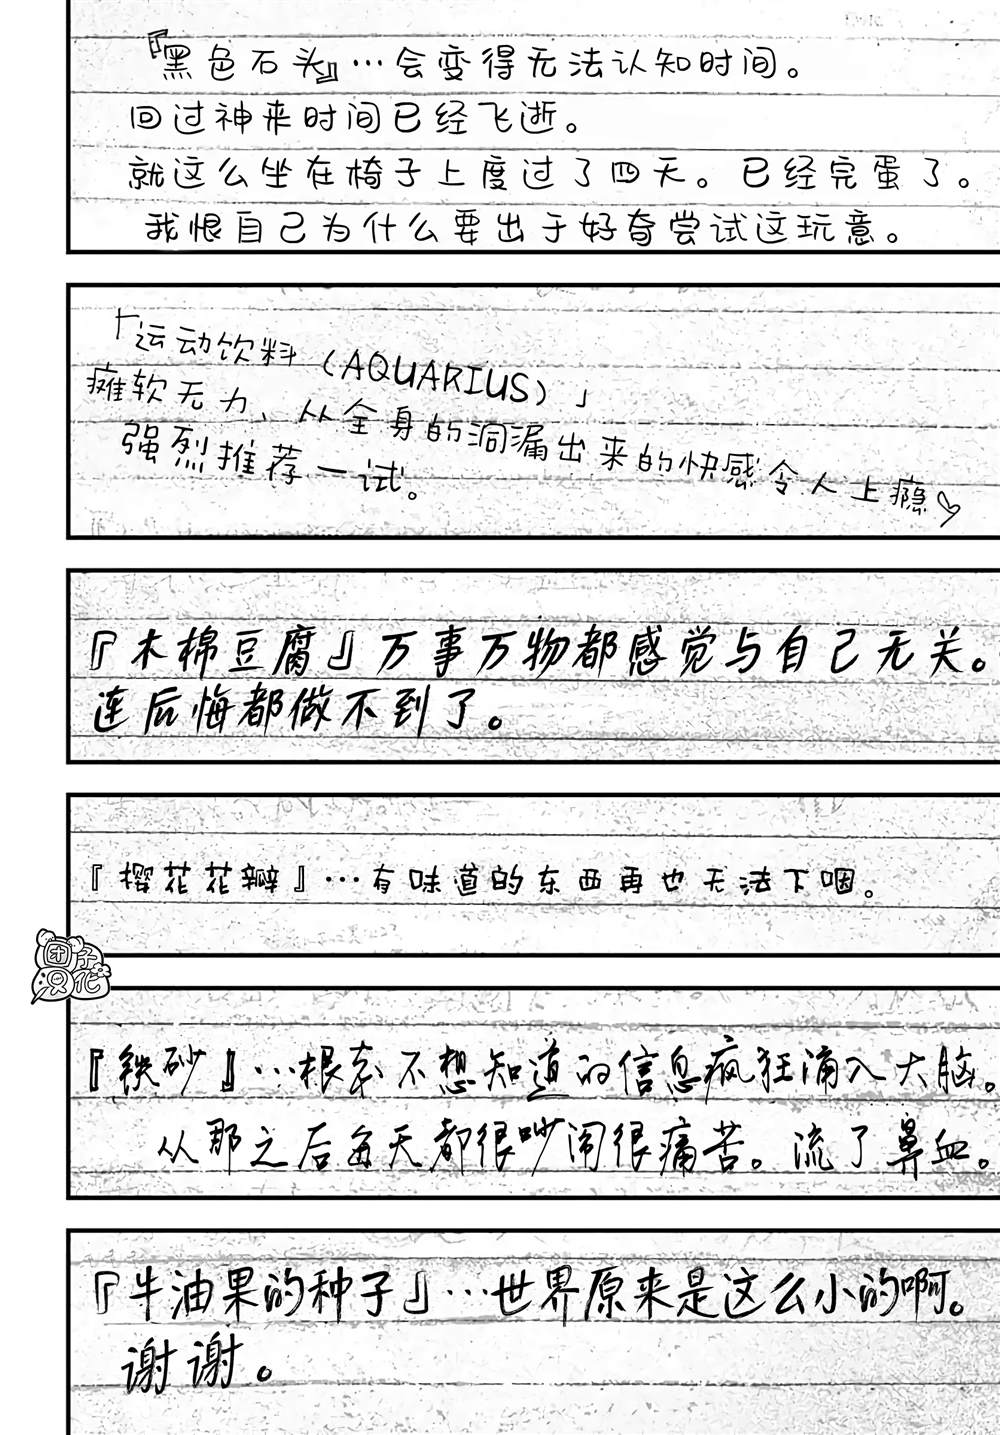 『黑色石头』…会变得无法认知时间。
回过神来时间已经飞逝。
就这么坐在椅子上度过了四天。已经完蛋了。
我恨自己为什么要出于好奇尝试这玩意。
「运动饮料（AQUARIUS）」
瘫软无力、从全身的洞漏出来的快感令人上瘾♡
强烈推荐一试。
『木棉豆腐』万事万物都感觉与自己无关。
连后悔都做不到了。
『樱花花瓣』…有味道的东西再也无法下咽。
团子
汉化
『铁砂』…根本不想知道的信息疯狂涌入大脑。
从那之后每天都很吵闹很痛苦。流了鼻血。
『牛油果的种子』…世界原来是这么小的啊。
谢谢。